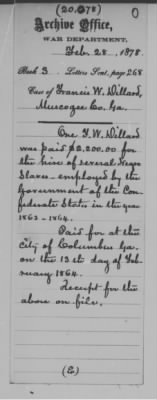 (20.078)
0
Archive Office,
WAR DEPARTMENT,
Feb. 28, 1878.
Book 3 Letters Sent, page 268
Case of Francis W. Dillard,
Muscogee Co. Ga.
One F. W. Dillard
was paid $2,200.00 for
the hire of several Negro
Slaves employed by the
Government of the Con-
federate States in the year
1863-1864.
Paid for at the
City of Columbus Ga.
on the 13th day of Feb-
ruary 1864.
Receipt for the
above on file.